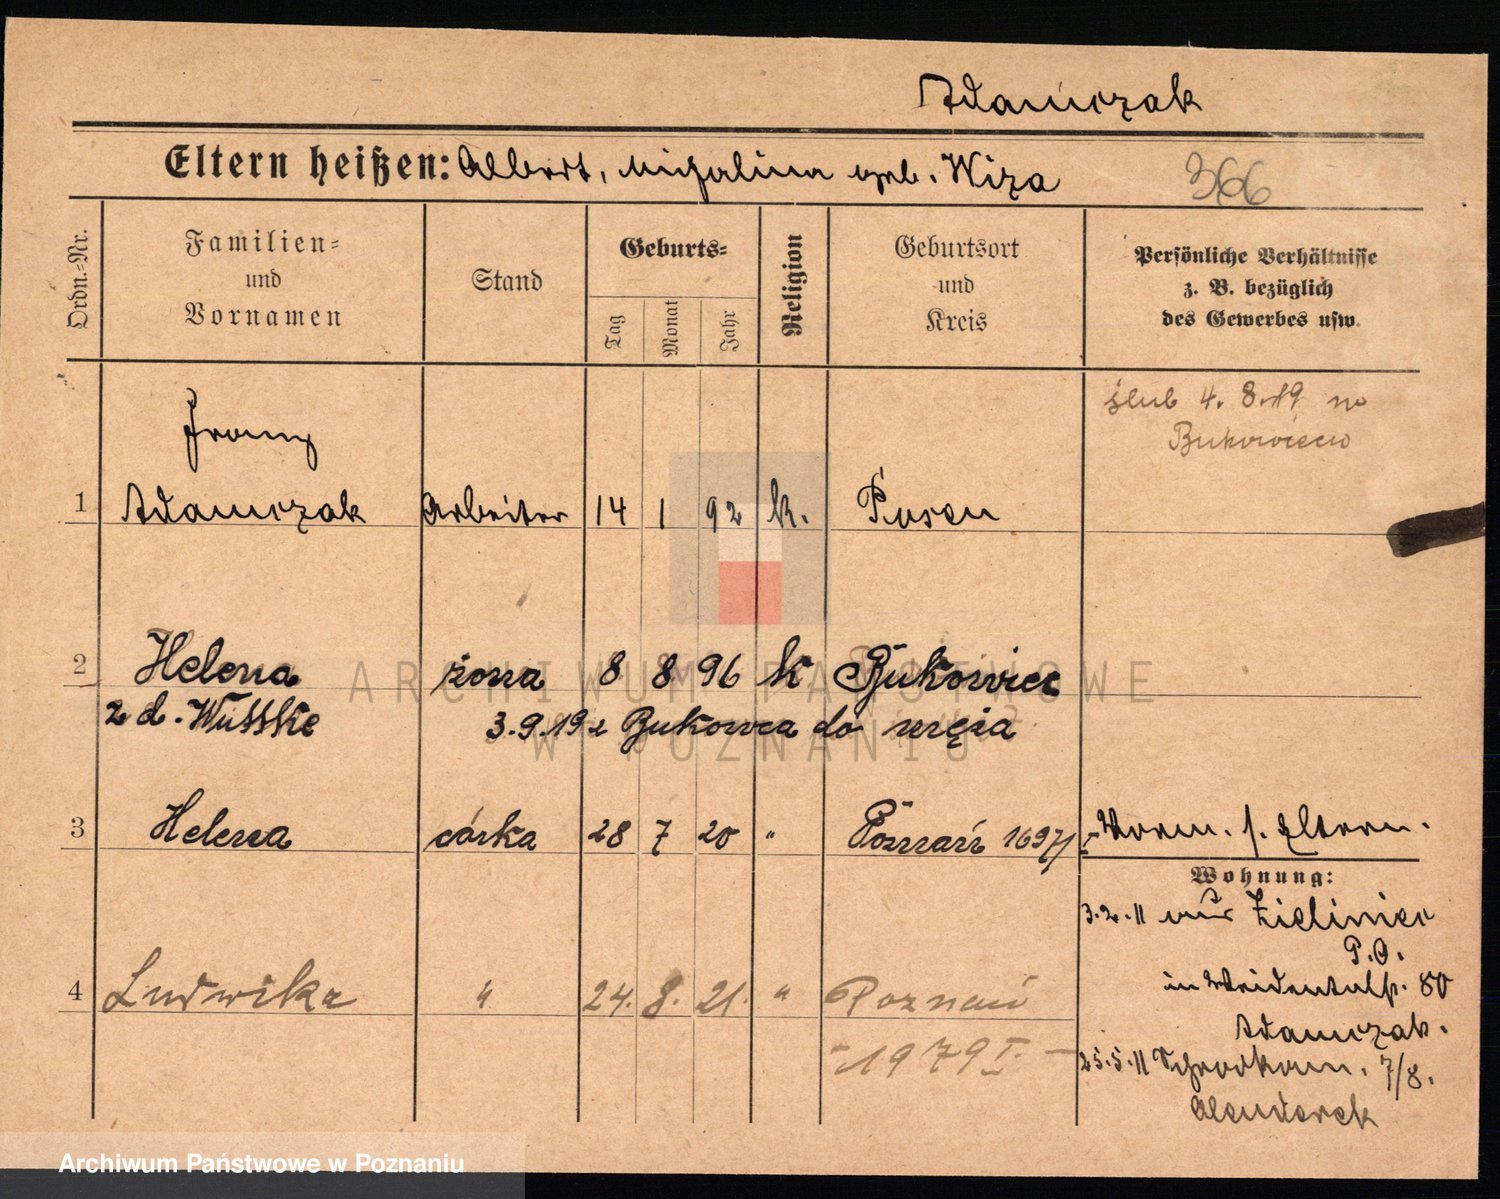 Adamczak
Eltern heißen: Albert, Michalina geb. Wiza
366
Ordn.-Nr.
Familien-
und
Vornamen
Stand
Geburts-
Tag
Monat
Jahr
Religion
Geburtsort
und
Kreis
Persönliche Verhältnisse
z. B. bezüglich
des Gewerbes usw.
ślub 4. 8. 19 w
Bukowiecu
Franz
1 Adamczak Arbeiter 14 1 92 k. Posen
2 Helena żona 8 8 96 k Bukowiec
z d. Wuttke 3.9.19 z Bukowca do męża
3 Helena córka 28 7 20 " Poznań 1697/I Worm. s. Eltern.
Wohnung:
3.2.11 aus Zieliniec
P.O.
in Weidentalstr. 80
4 Ludwika " 24. 8. 21. " Poznań
Adamczak.
- 1979 I. -
25.5.11 Schrodkam. 7/8.
ARCHIWUM PAŃSTWOWE
W POZNANIU
Archiwum Państwowe w Poznaniu